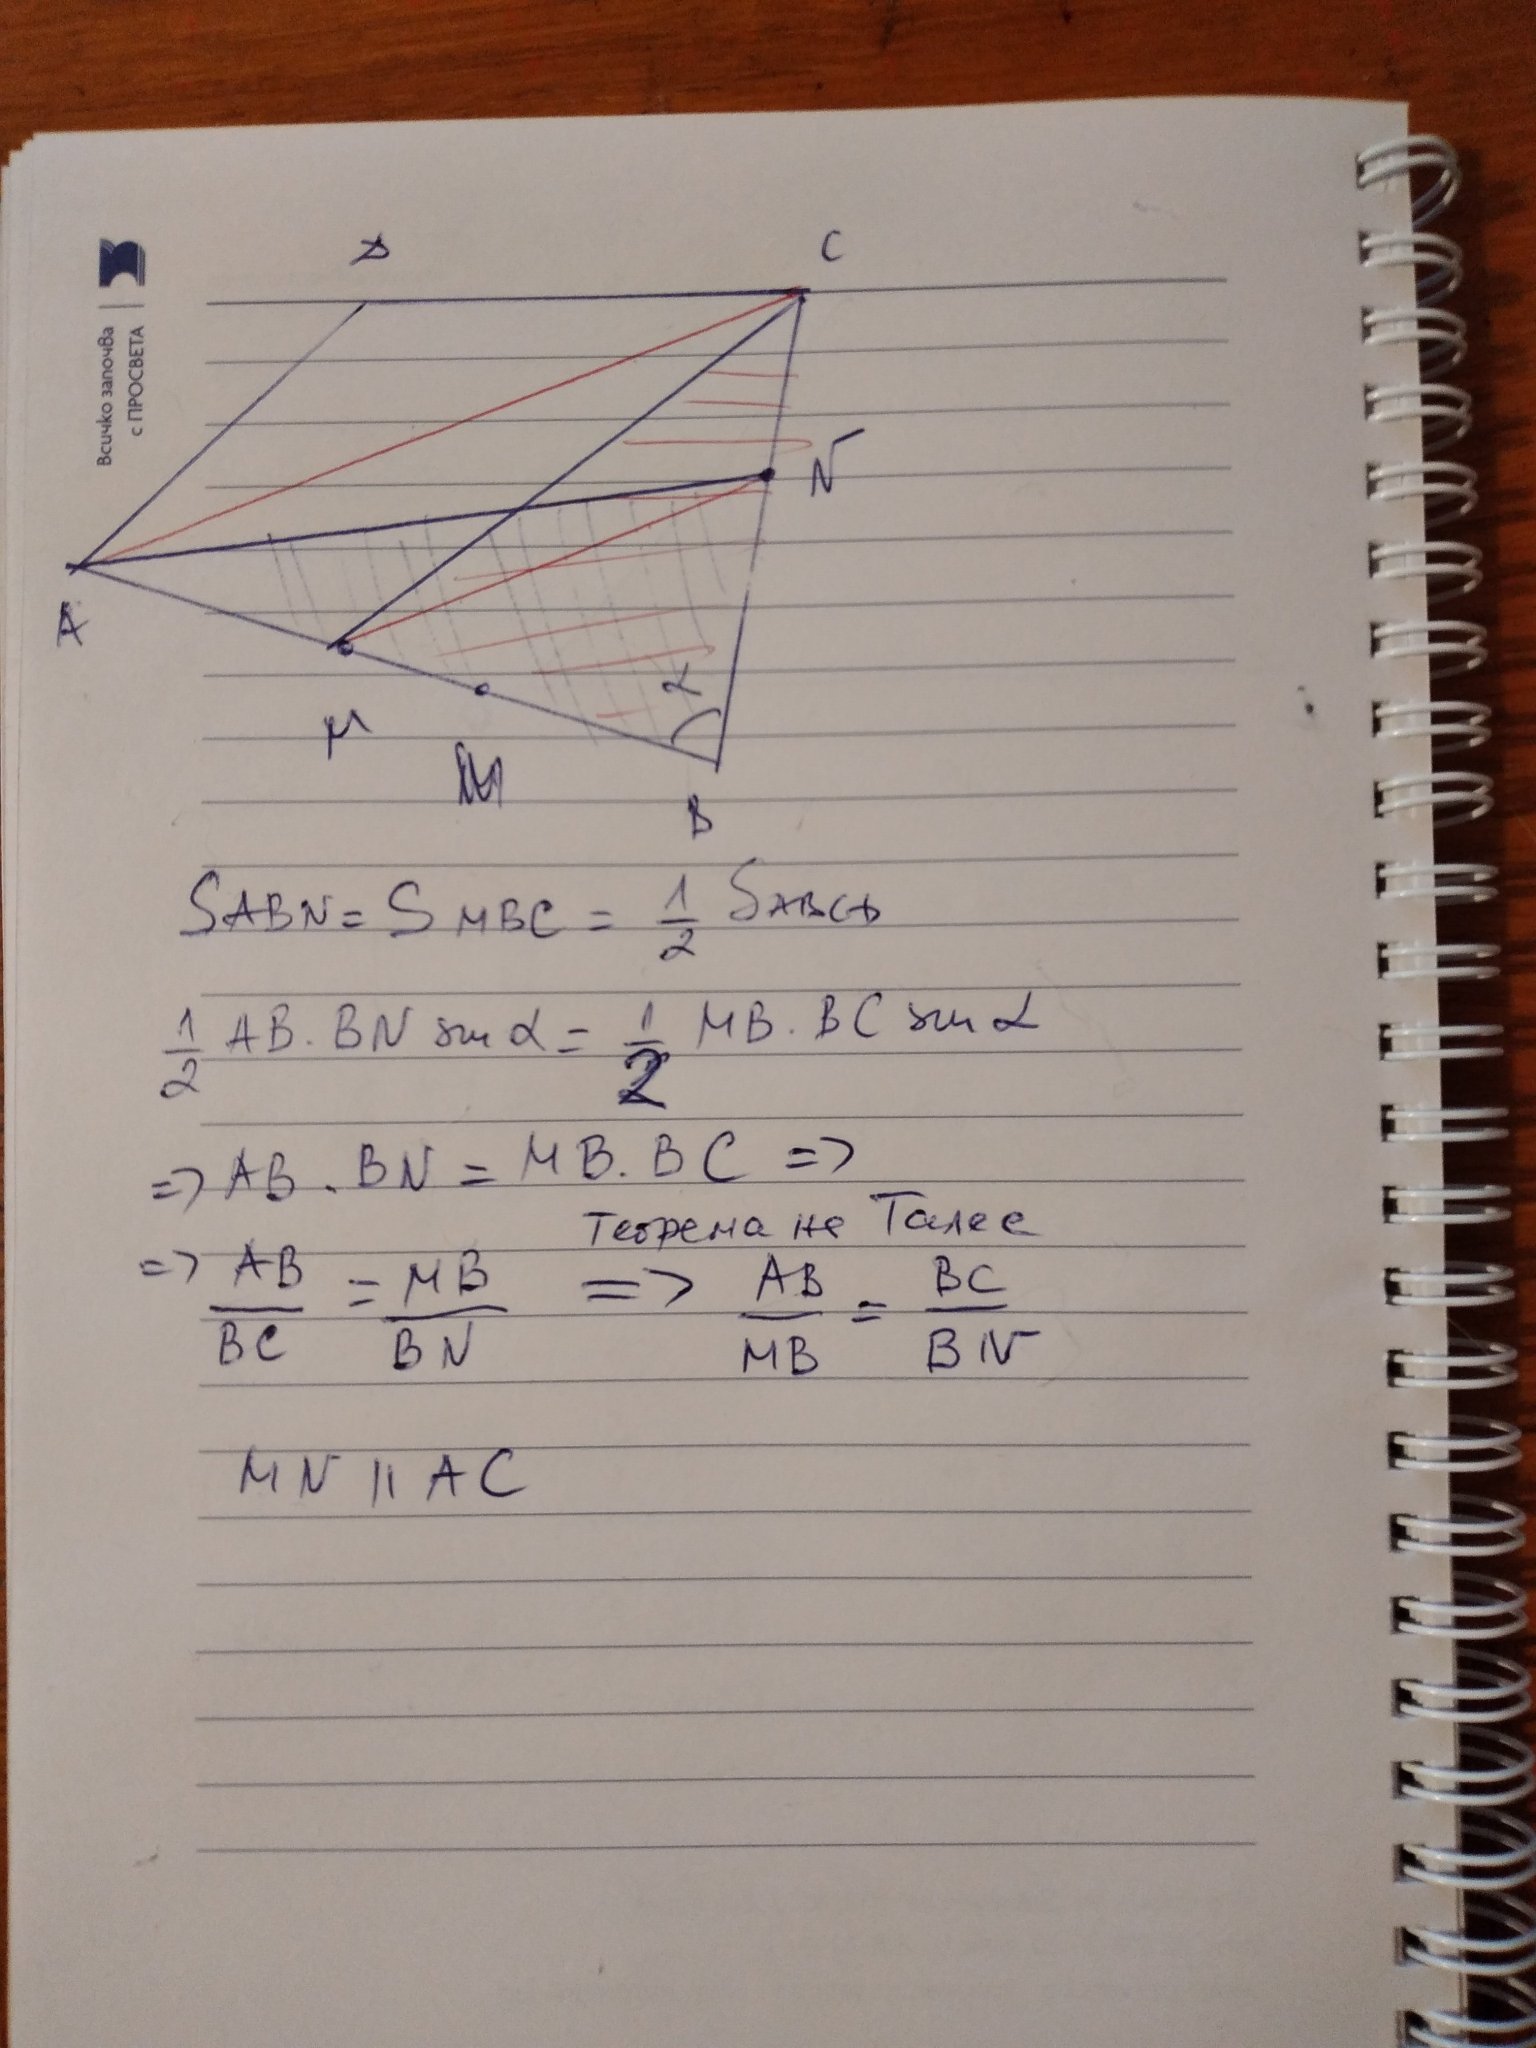 Всичко започва
с ПРОСВЕТА
D C
N
A
α
M
B
S ABN = S MBC = 1/2 S ABCD
1/2 AB . BN sin α = 1/2 MB . BC sin α
=> AB . BN = MB . BC =>
Теорема не Талес
=> AB/BC = MB/BN => AB/MB = BC/BN
MN || AC